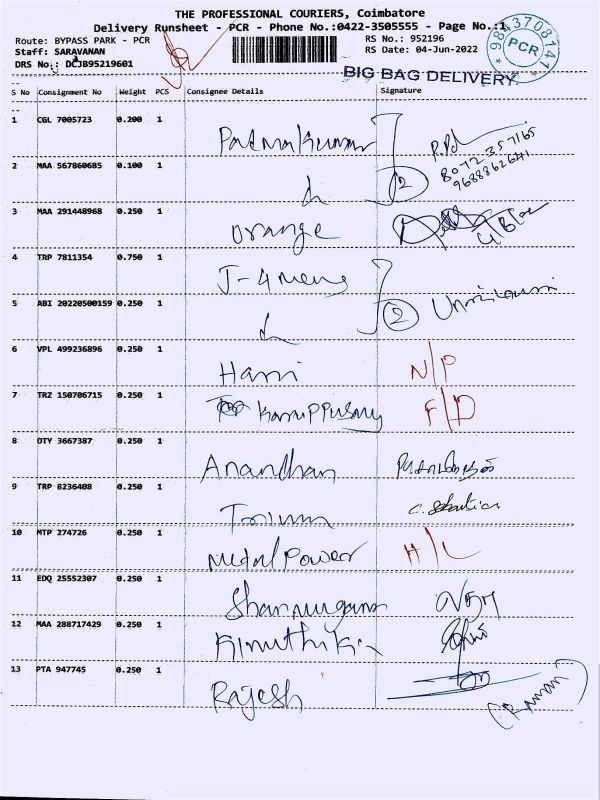 THE PROFESSIONAL COURIERS, Coimbatore
Delivery Runsheet - PCR - Phone No.:0422-3505555 - Page No.:1
Route: BYPASS PARK - PCR
RS No.: 952196
Staff: SARAVANAN
RS Date: 04-Jun-2022
DRS No.: DCJB95219601
9843708141
PCR
BIG BAG DELIVERY
S No Consignment No Weight PCS Consignee Details Signature
1 CGL 7005723 0.200 1 Padmakumar
8072357165
9688862641
2 MAA 567860685 0.100 1 2
3 MAA 291448968 0.250 1 Orange
4 TRP 7811354 0.750 1 J-4 mens
5 ABI 20220500159 0.250 1 2
6 VPL 499236896 0.250 1 Harri N/P
7 TRZ 150706715 0.250 1 Karuppusamy F/D
8 OTY 3667387 0.250 1 Anandhan
9 TRP 8236408 0.250 1
10 MTP 274726 0.250 1 Metal Power H/L
11 EDQ 25552307 0.250 1 Shanmugam
12 MAA 288717429 0.250 1
13 PTA 947745 0.250 1 Rajesh (Raman)